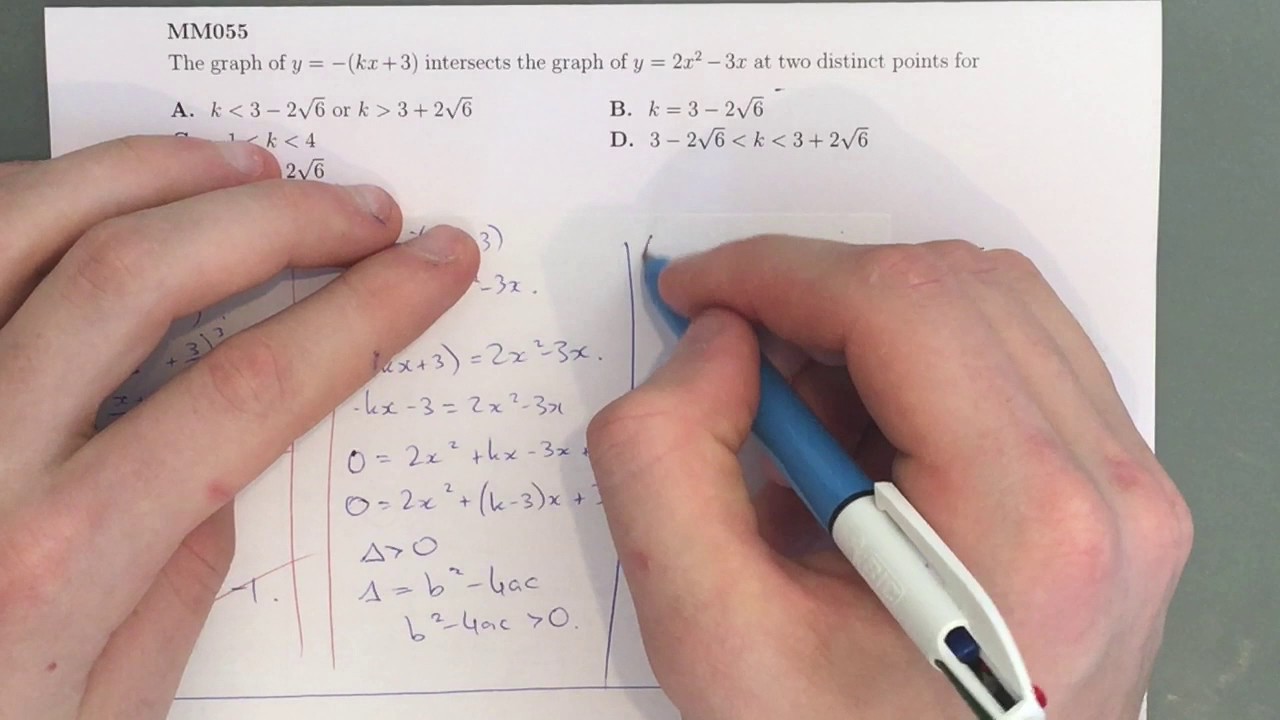 MM055
The graph of y = −(kx + 3) intersects the graph of y = 2x² − 3x at two distinct points for
A. k < 3 − 2√6 or k > 3 + 2√6
B. k = 3 − 2√6
k < 4
D. 3 − 2√6 < k < 3 + 2√6
2√6
3)
-3x.
x+3) = 2x²-3x.
-kx -3 = 2x²-3x
0 = 2x² +kx -3x
0 = 2x² + (k-3)x +
Δ>0
Δ = b² -4ac
b²-4ac >0.